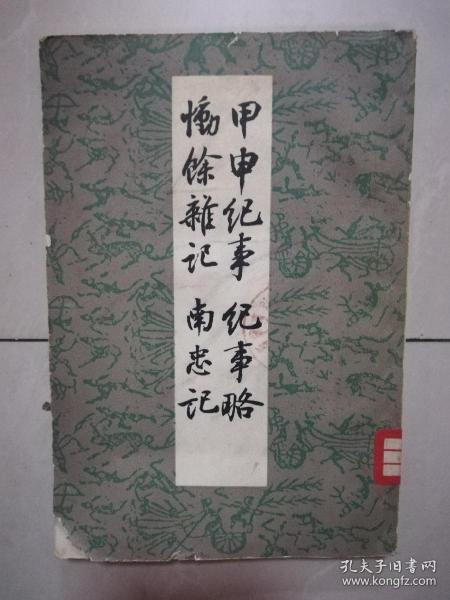 甲申纪事 纪事略
恸馀杂记 南忠记
孔夫子旧书网
www.kongfz.com